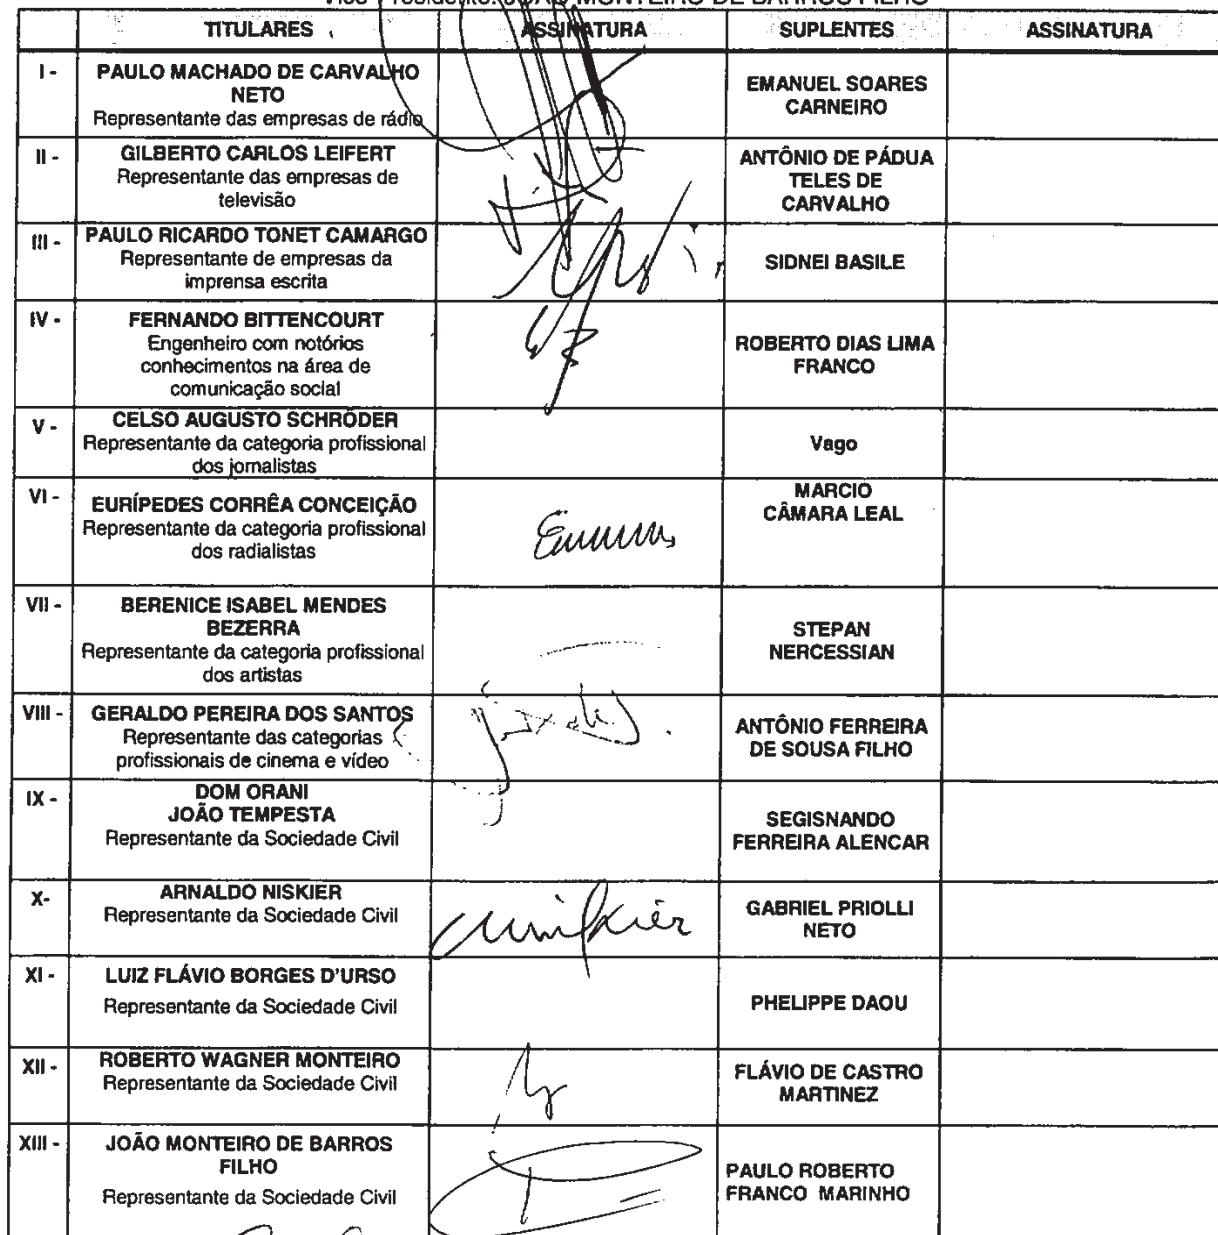 MONTEIRO DE BARROS FILHO
TITULARES ASSINATURA SUPLENTES ASSINATURA
I - PAULO MACHADO DE CARVALHO
NETO
Representante das empresas de rádio
EMANUEL SOARES
CARNEIRO
II - GILBERTO CARLOS LEIFERT
Representante das empresas de
televisão
ANTÔNIO DE PÁDUA
TELES DE
CARVALHO
III - PAULO RICARDO TONET CAMARGO
Representante de empresas da
imprensa escrita
SIDNEI BASILE
IV - FERNANDO BITTENCOURT
Engenheiro com notórios
conhecimentos na área de
comunicação social
ROBERTO DIAS LIMA
FRANCO
V - CELSO AUGUSTO SCHRÖDER
Representante da categoria profissional
dos jornalistas
Vago
VI - EURÍPEDES CORRÊA CONCEIÇÃO
Representante da categoria profissional
dos radialistas
MARCIO
CÂMARA LEAL
VII - BERENICE ISABEL MENDES
BEZERRA
Representante da categoria profissional
dos artistas
STEPAN
NERCESSIAN
VIII - GERALDO PEREIRA DOS SANTOS
Representante das categorias
profissionais de cinema e vídeo
ANTÔNIO FERREIRA
DE SOUSA FILHO
IX - DOM ORANI
JOÃO TEMPESTA
Representante da Sociedade Civil
SEGISNANDO
FERREIRA ALENCAR
X- ARNALDO NISKIER
Representante da Sociedade Civil
GABRIEL PRIOLLI
NETO
XI - LUIZ FLÁVIO BORGES D'URSO
Representante da Sociedade Civil
PHELIPPE DAOU
XII - ROBERTO WAGNER MONTEIRO
Representante da Sociedade Civil
FLÁVIO DE CASTRO
MARTINEZ
XIII - JOÃO MONTEIRO DE BARROS
FILHO
Representante da Sociedade Civil
PAULO ROBERTO
FRANCO MARINHO